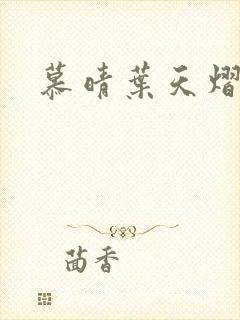 慕晴葉天熠
茴香